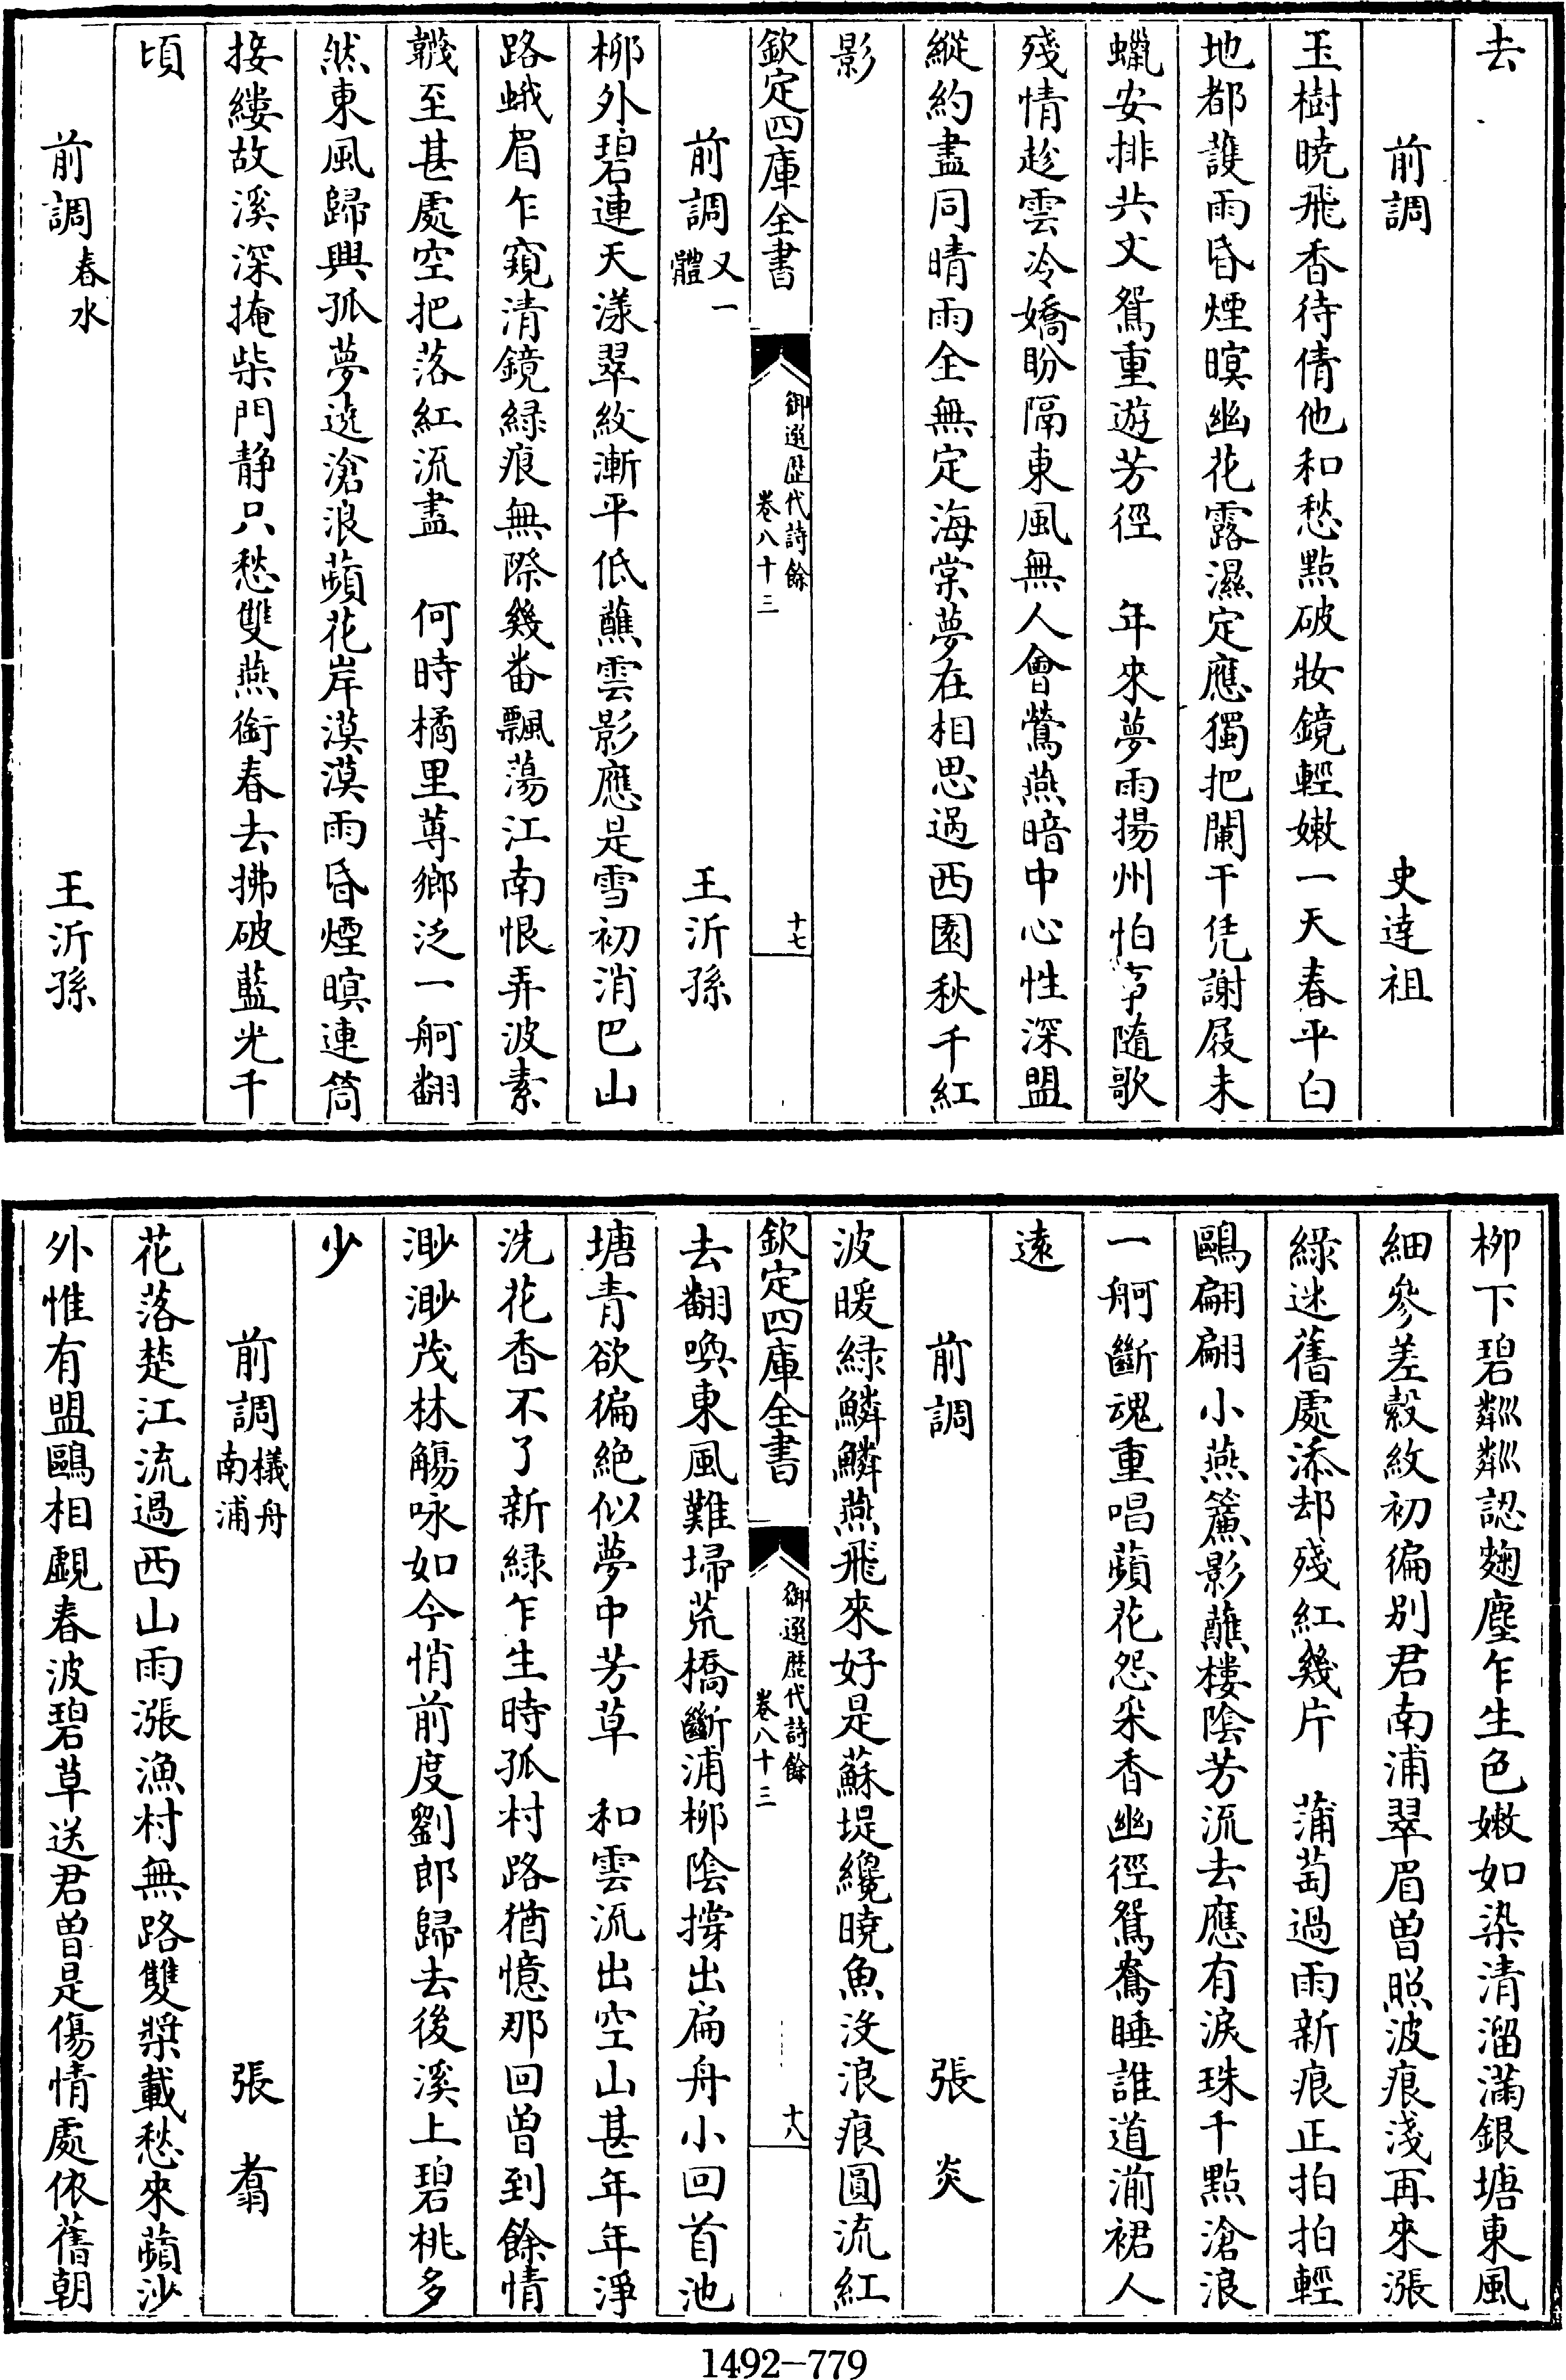 去
前調　史達祖
玉樹曉飛香待倩他和愁點破妝鏡輕嫩一天春平白
地都護雨昏煙暝幽花露濕定應獨把闌干凭謝屐未
蠟安排共文鴛重遊芳徑　年來夢雨揚州怕事隨歌
殘情趁雲冷嬌盼隔東風無人會鶯燕暗中心性深盟
縱約盡同晴雨全無定海棠夢在相思過西園秋千紅
影
欽定四庫全書　御選歴代詩餘　卷八十三　十七
前調又一體　王沂孫
柳外碧連天漾翠紋漸平低蘸雲影應是雪初消巴山
路蛾眉乍窺清鏡緑痕無際幾番飄蕩江南恨弄波素
韈至甚處空把落紅流盡　何時橘里蓴鄉泛一舸翩
然東風歸興孤夢遶滄浪蘋花岸漠漠雨昏煙暝連筒
接縷故溪深掩柴門静只愁雙燕銜春去拂破藍光千
頃
前調春水　王沂孫
柳下碧粼粼認麴塵乍生色嫩如染清溜滿銀塘東風
細參差縠紋初徧别君南浦翠眉曽照波痕淺再來漲
綠迷舊處添却殘紅幾片　蒲萄過雨新痕正拍拍輕
鷗翩翩小燕簾影蘸樓陰芳流去應有淚珠千點滄浪
一舸斷魂重唱蘋花怨采香幽徑鴛鴦睡誰道湔裙人
遠
前調　張炎
波暖緑鱗鱗燕飛來好是蘇堤纔曉魚没浪痕圓流紅
欽定四庫全書　御選歴代詩餘　卷八十三　十八
去翻喚東風難埽荒橋斷浦柳陰撐出扁舟小回首池
塘青欲徧絶似夢中芳草　和雲流出空山甚年年淨
洗花香不了新緑乍生時孤村路猶憶那回曽到餘情
渺渺茂林觴咏如今悄前度劉郎歸去後溪上碧桃多
少
前調檥舟南浦　張翥
花落楚江流過西山雨漲漁村無路雙槳載愁來蘋沙
外惟有盟鷗相覷春波碧草送君曽是傷情處依舊朝
1492—779